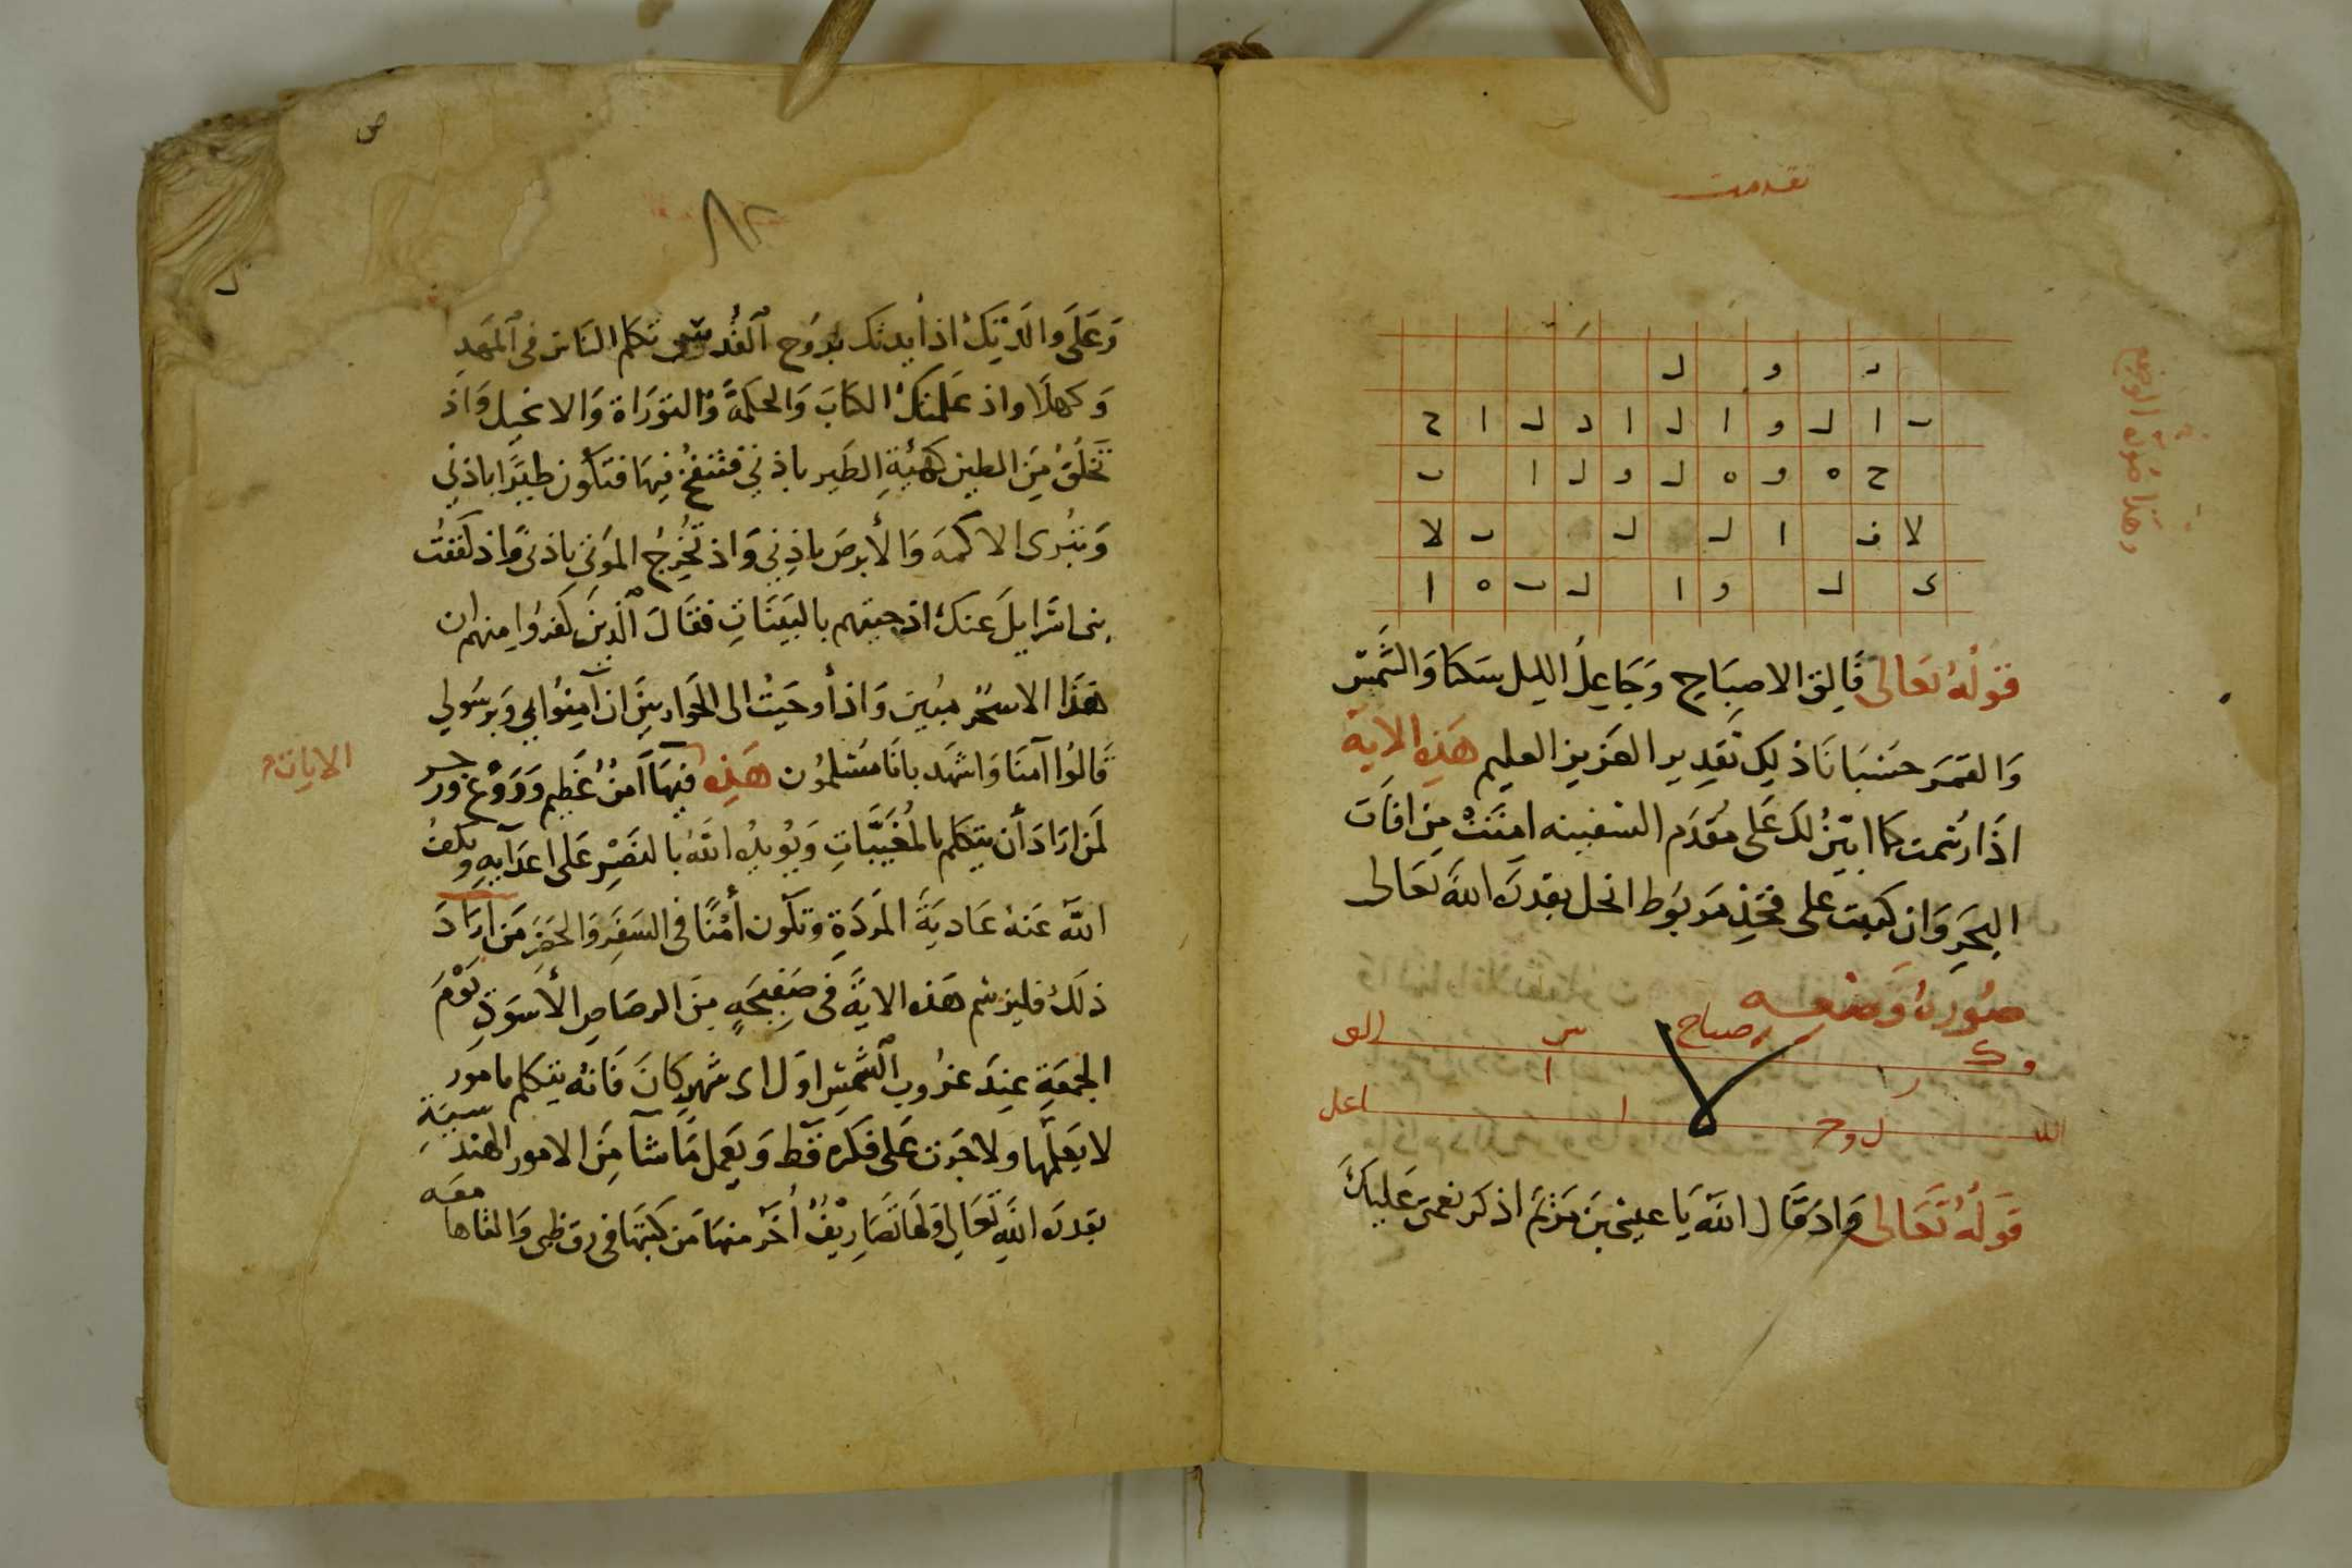 تقدمت
د و ل
ب ا ل و ا ل ا د ل ا ح
ح ه و ه ل و ل ا ب
لا ف ا ل ل ب لا
ى ل و ا ل ب ه ا
قَولُهُ تعَالى فَالِق الاصبَاح وَجَاعِلُ الليل سَكنا وَالشَّمسَ
وَالقمَر حسْبَانَا ذلِك تَقدِير العَزيز العليم هَذِه الاية
اذَا رُسمت كما ابيّنُ لكَ عَلى مقدَم السَفينه امنَتْ مِن افات
البحَرِ وَان كتبت على فخذِ مَربُوط انحل بقدرَة اللهَ تعَالى
صُورَة وَضعــه
صباح
قَولُهُ تَعَالى وَاذ قَال اللهَ يَا عيسى بن مَريَم اذكر نعمتى عَليكَ
٨٢
وَعَلَى وَالدَتِكَ اذ ايدتك بِرُوح القُدسِ تكلم النَاس فى المَهدِ
وَكهلًا واذ عَلمتكَ الكتابَ وَالحكمَة وَالتورَاة وَالانجيل وَاذ
تخلقُ مِنَ الطين كهيئةِ الطَير باذنى فتنفخُ فيهَا فتكُون طيرًا باذنى
وَتبْرى الاكمَهَ وَالأبرصَ باذنِى وَاذ تُخْرِجُ الموتى باذنى وَاذ كففتُ
بنى اسرَايلَ عَنكَ اذ جيتهم بالبيَنَاتِ فقَالَ الّذِينَ كفَرُوا منهم ان
هَذَا الا سحْر مُبين وَاذ أوحَيتُ الى الحَوَاريِيَن ان آمِنُوا بى وَبِرَسُولى
قَالُوا آمنَا وَاشهَد بانَا مُسْلمُون هَذِه فيهَا أمرٌ عَظيم
الايات
لمَن ارَادَ أن يتكلم بالمُغَيَّبَاتِ وَيُويدُه اللهَ بالنَصْر عَلى اعدَآيه وَيكفُ
اللهَ عَنهُ عَاديَةَ المرَدَةِ وتكَون أمْنًا فى السَفَرِ وَالحَضَرِ مَن ارَادَ
ذلكَ فليرسم هَذه الاية فى صَفِيحَةٍ مِن الرصَاصِ الأسوَدِ يَوْمَ
الجمعَةِ عِندَ غرُوب الشمسِ اوَل اى شهرِ كانَ فَانهُ يتكلم بامور
لا يعَلمها ولا جَرَت عَلى فكرَه قَط وَيعَمل مَا شَآ مِن الامور الهند
سيَةِ
بقدرَة اللهِ تَعَالى وَلهَا تصَاريْفٌ أخَر منهَا مَن كتبَهَا فى رق ظبى وَالقاها
معَه